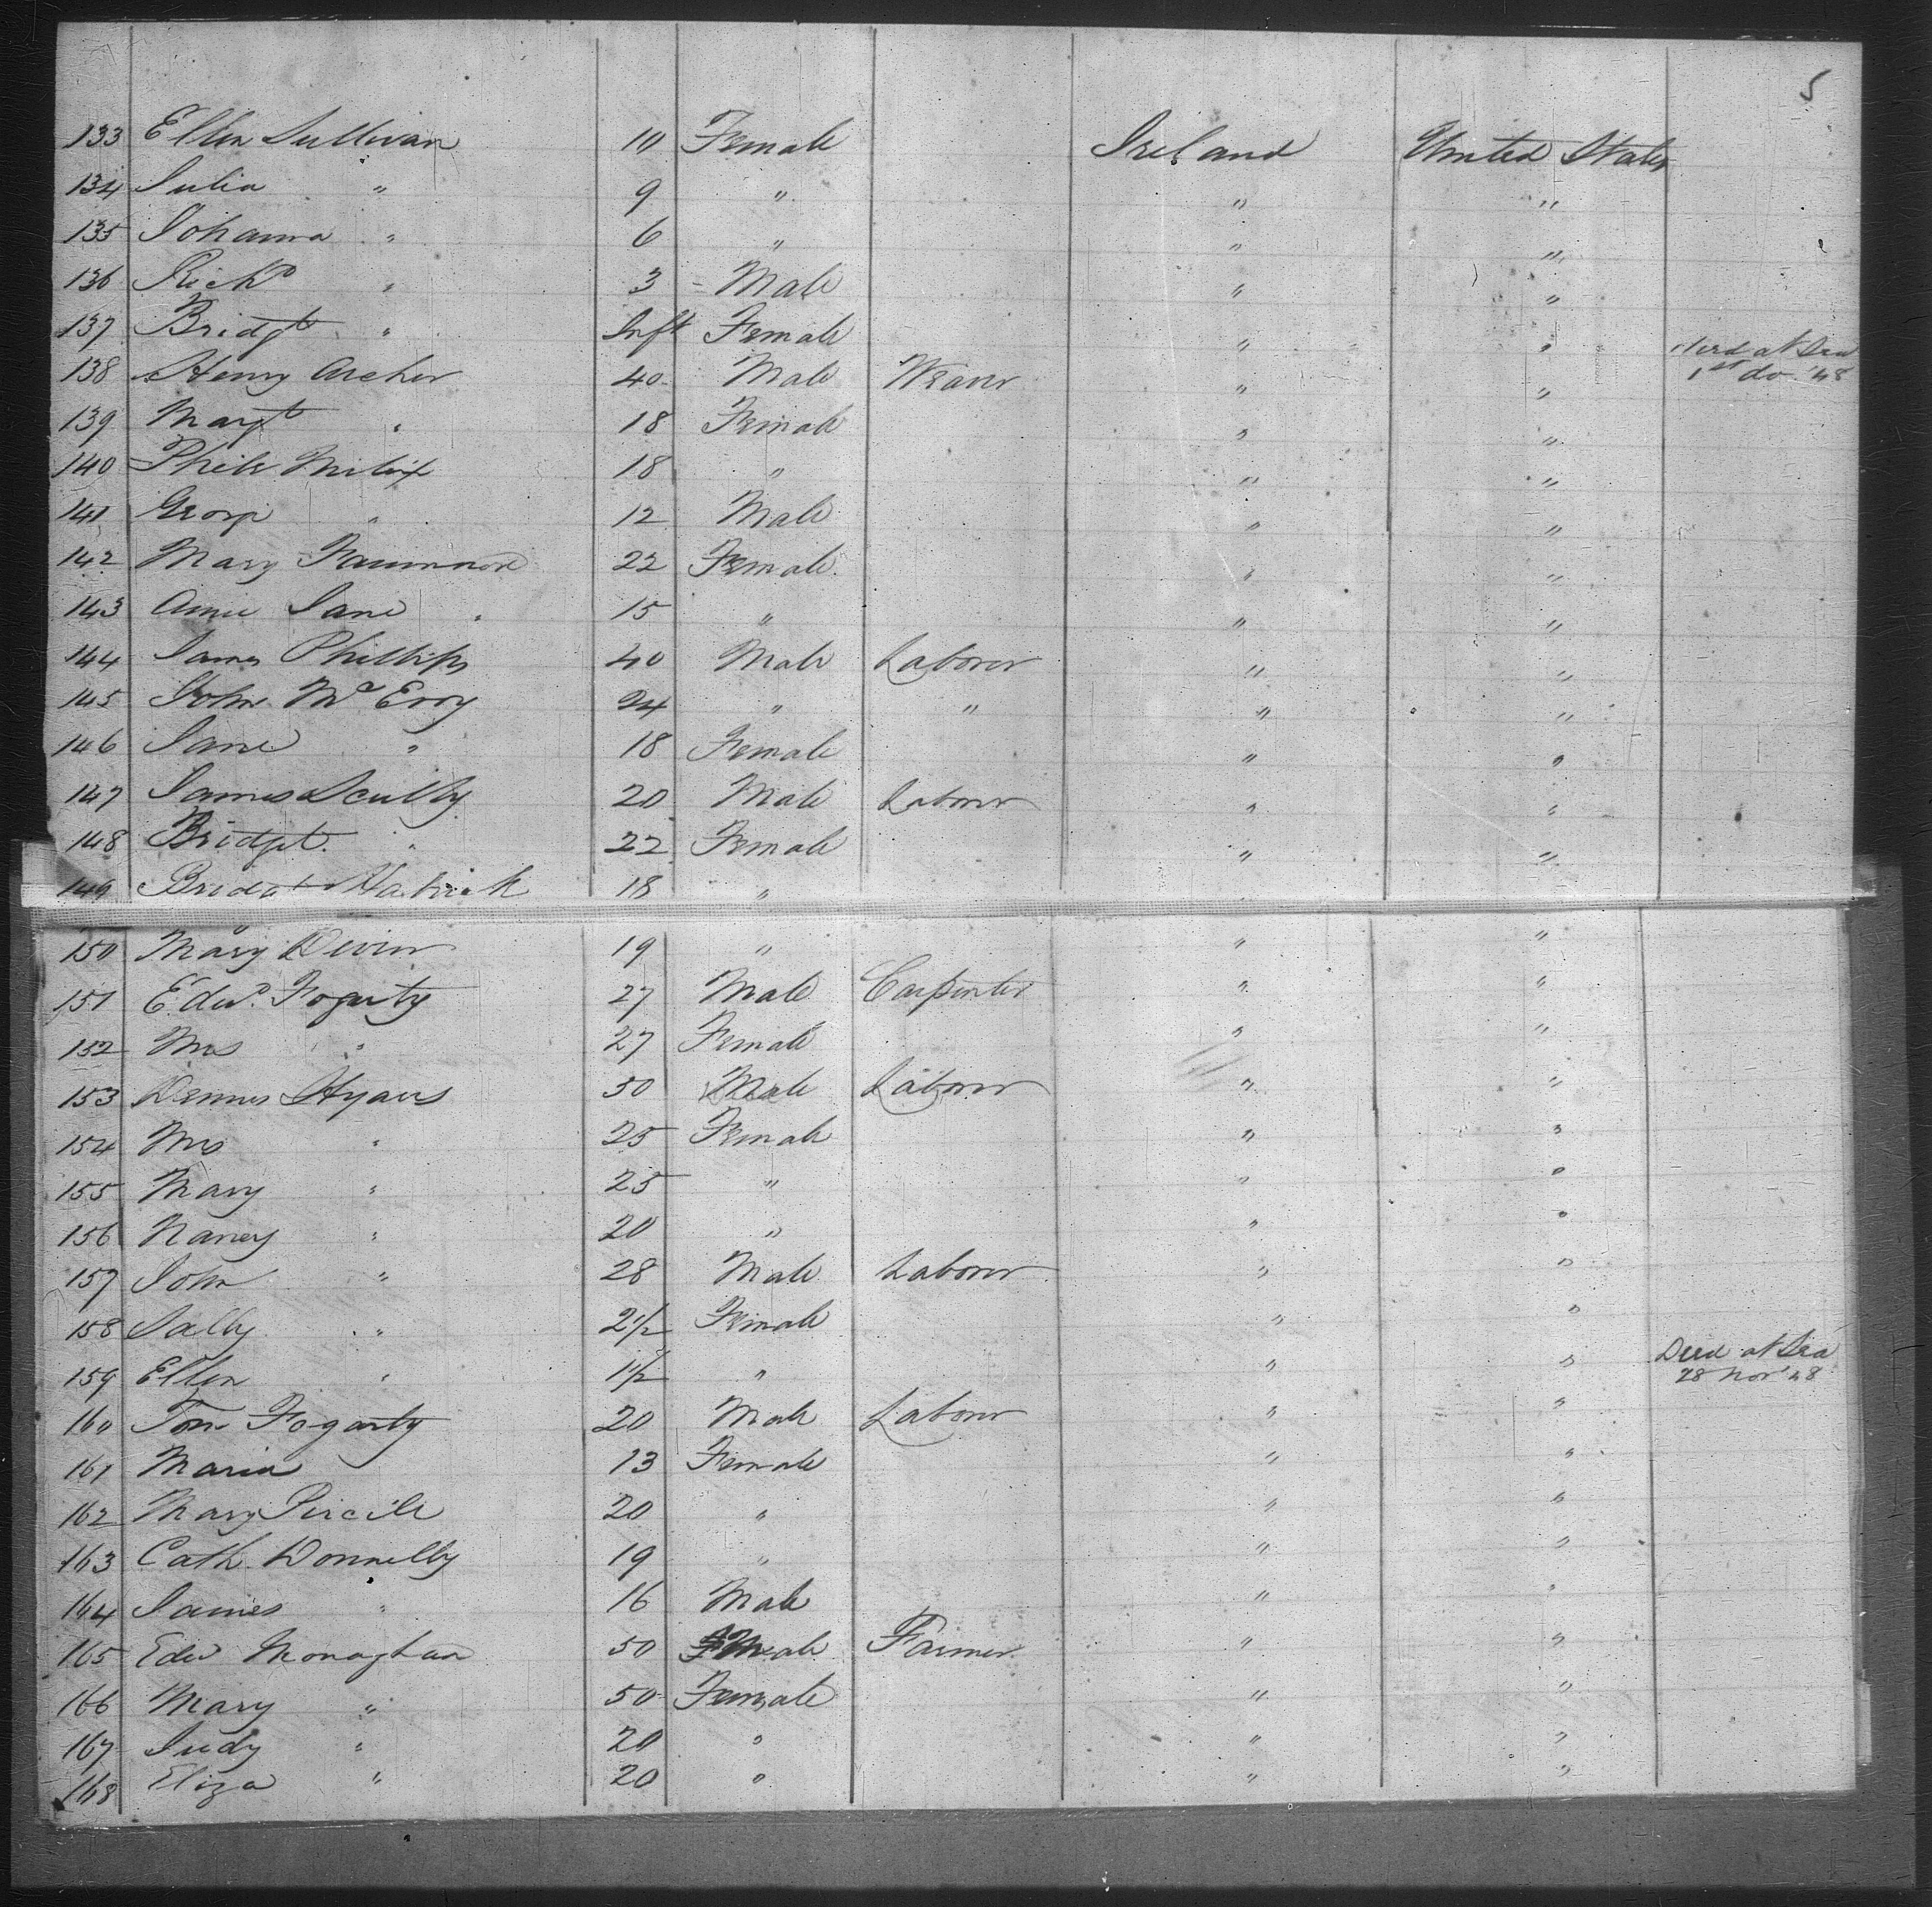 5
133 Ellen Sullivan 10 Female Ireland United States
134 Julia " 9 " " "
135 Johanna " 6 " " "
136 Richd " 3 - Male " "
137 Bridgt " Inft Female " " Died at Sea
1st do '48
138 Henry Archer 40 Male Weaver " "
139 Margt " 18 Female " "
140 18 " " "
141 George " 12 Male " "
142 Mary 22 Female " "
143 Anne Jane " 15 " " "
144 James Phillips 40 Male Laborer " "
145 John McEvoy 24 " " " "
146 Jane " 18 Female " "
147 James Scully 20 Male Laborer " "
148 Bridget " 22 Female " "
149 Bridgt 18 "
150 Mary Devin 19 " " "
151 Edwd. Fogarty 27 Male Carpenter " "
152 Mrs " 27 Female " "
153 Dennis 50 Male Laborer " "
154 Mrs " 25 Female " "
155 Mary " 25 " " "
156 Nancy " 20 " " "
157 John " 28 Male Laborer " "
158 Sally " 2 1/2 Female " "
159 Ellen " 1 1/2 " " " Died at Sea
28 Nov '48
160 Tom Fogarty 20 Male Laborer " "
161 Maria 13 Female " "
162 Mary 20 " " "
163 Cath Donnelly 19 " " "
164 James " 16 Male " "
165 Edw Monaghan 50 Male Farmer " "
166 Mary " 50 Female " "
167 Judy " 20 " " "
168 Eliza " 20 " " "